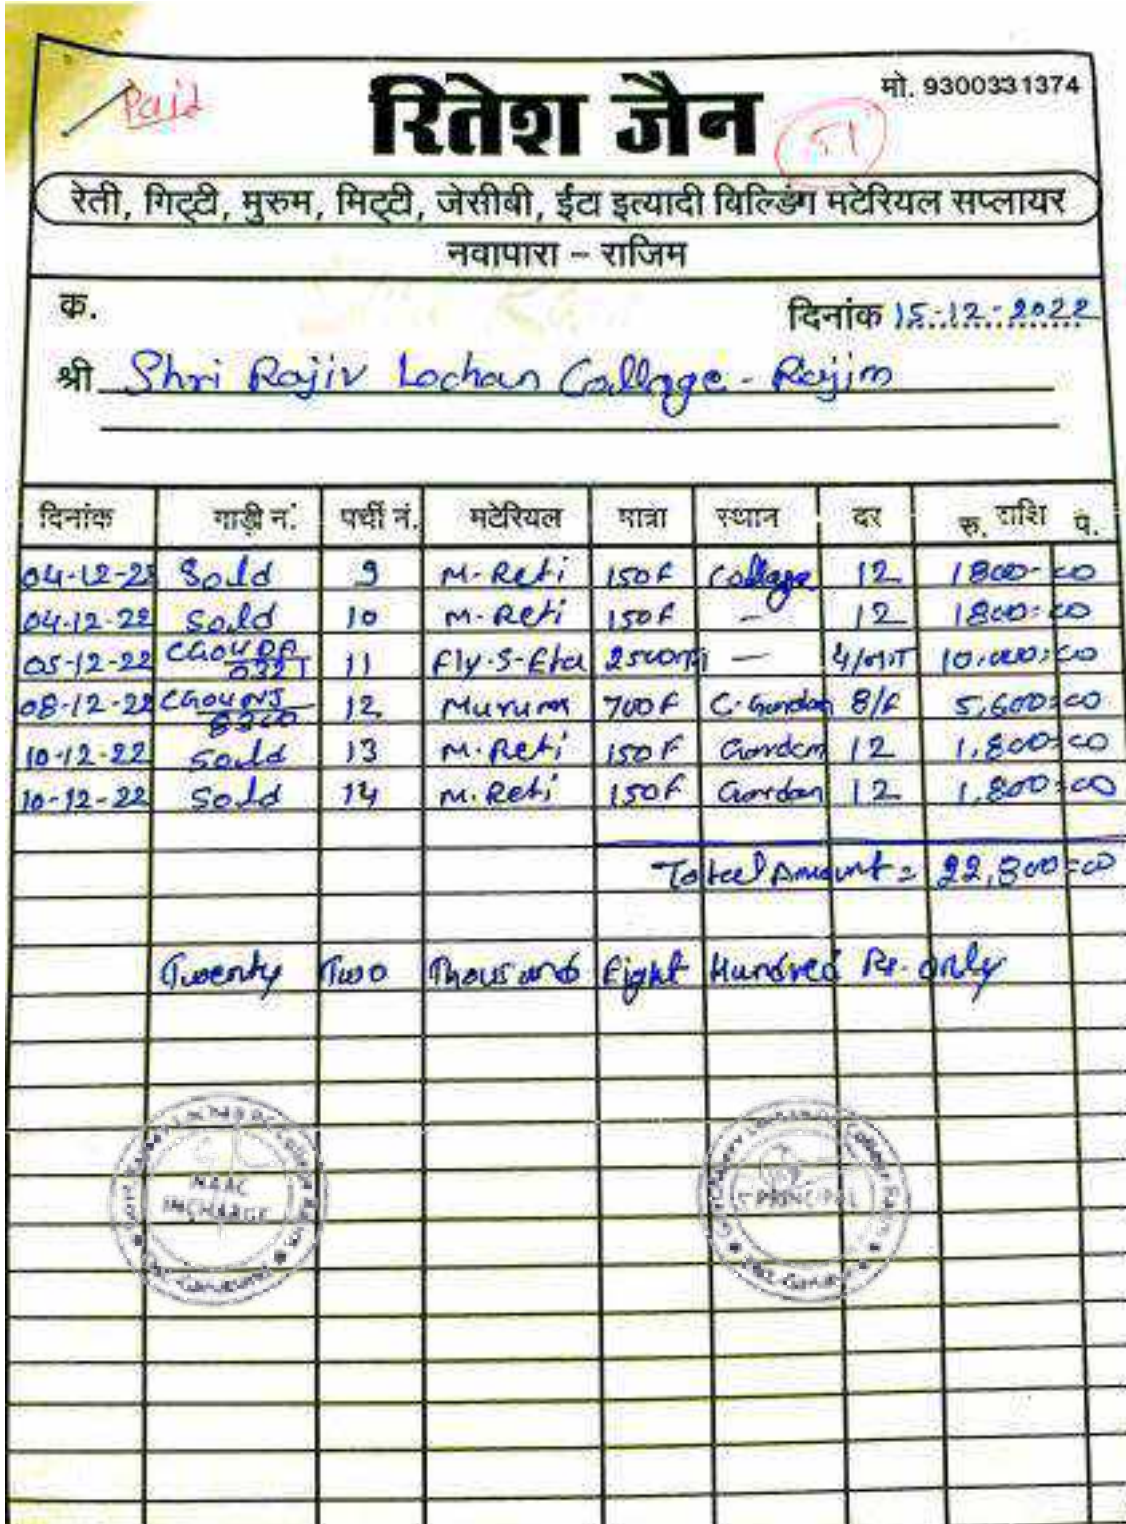 Paid
रितेश जैन
मो. 9300331374
51
रेती, गिट्टी, मुरुम, मिट्टी, जेसीबी, ईंटा इत्यादी बिल्डिंग मटेरियल सप्लायर
नवापारा – राजिम
क.
दिनांक 15-12-2022
श्री Shri Rajiv Lochan Collage - Rajim
दिनांक गाड़ी नं. पर्ची नं. मटेरियल मात्रा स्थान दर रु. राशि प.
04-12-22 Sold 9 M-Reti 150F Collage 12 1800-00
04-12-22 Sold 10 M-Reti 150F — 12 1800=00
05-12-22 11 Fly-S-Eta 2500 — 4/ 10,000=00
08-12-22 12 Murum 700F C-Gardan 8/F 5,600=00
10-12-22 Sold 13 M.Reti 150F Garden 12 1,800=00
10-12-22 Sold 14 M.Reti 150F Gardan 12 1,800=00
Total Amount = 22,800=00
Twenty Two Thousand Eight Hundred Rs. only
NAAC
INCHARGE
PRINCIPAL